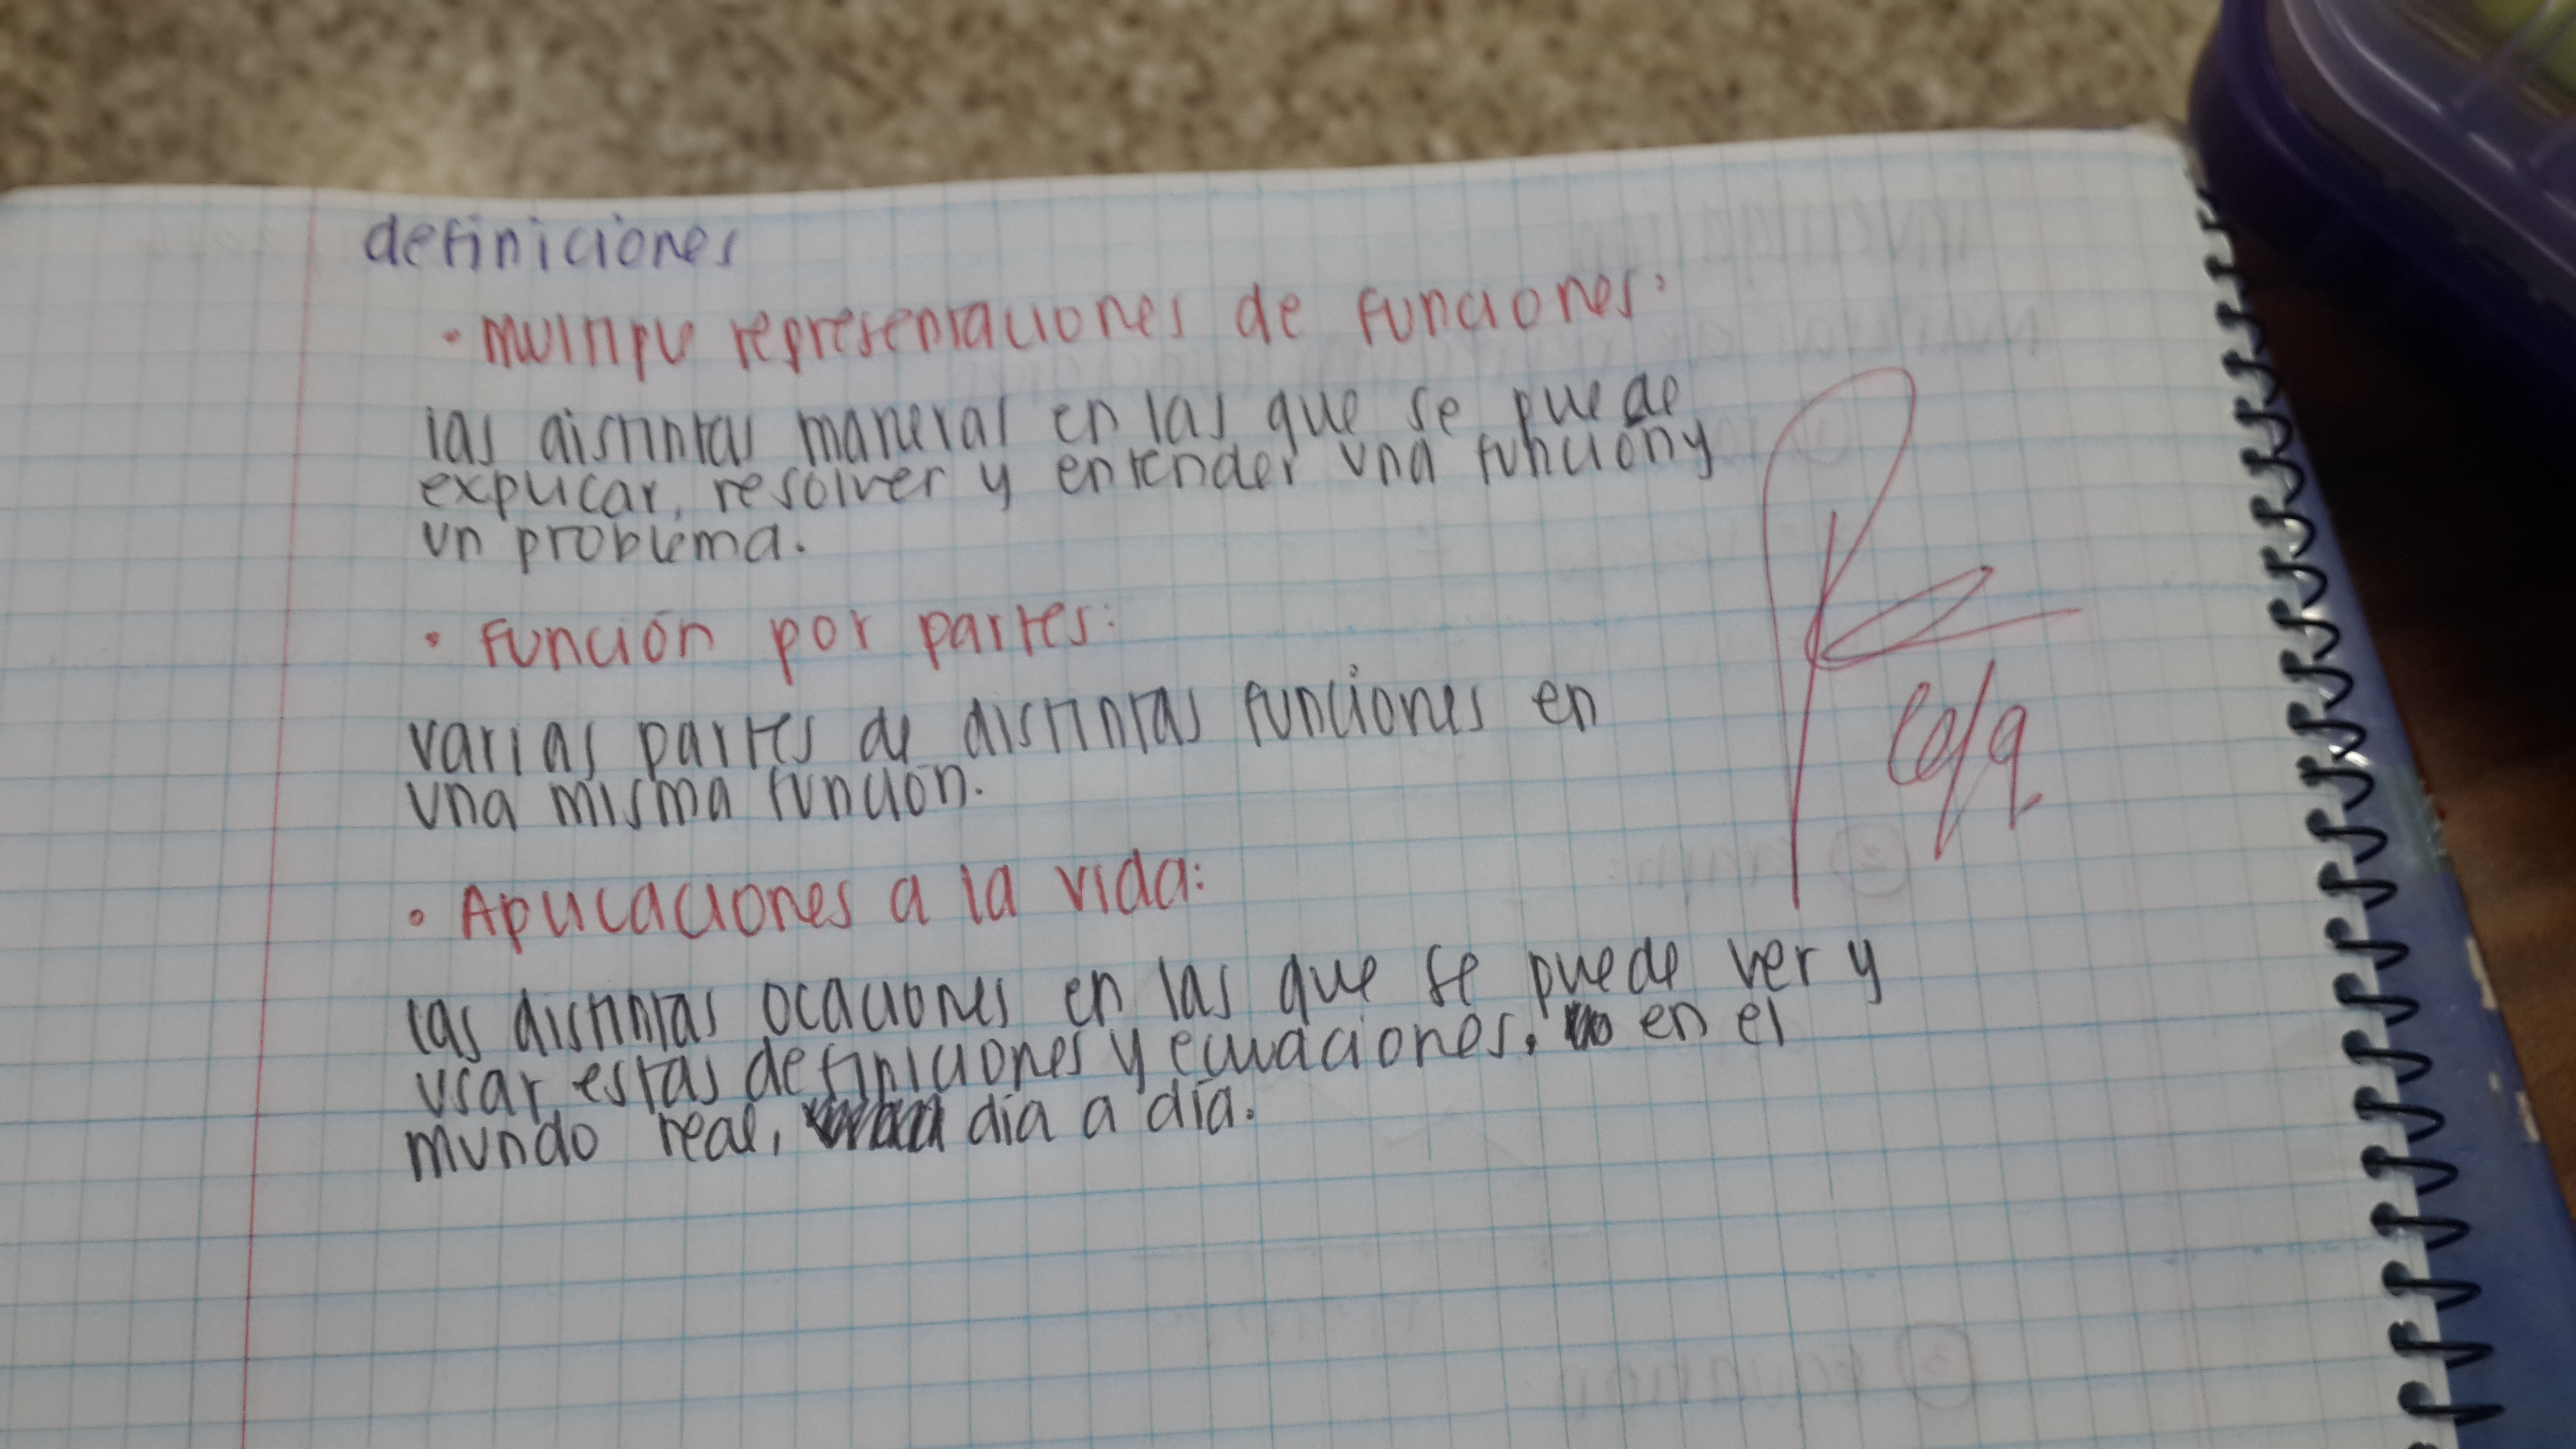 definiciones
• multiple representaciones de funciones:
las distintas maneras en las que se puede
explicar, resolver y entender una función y
un problema.
• Función por partes:
varias partes de distintas funciones en
una misma función.
• Aplicaciones a la vida:
las distintas ocaciones en las que se puede ver y
usar estas definiciones y ecuaciones. en el
mundo real, día a día.